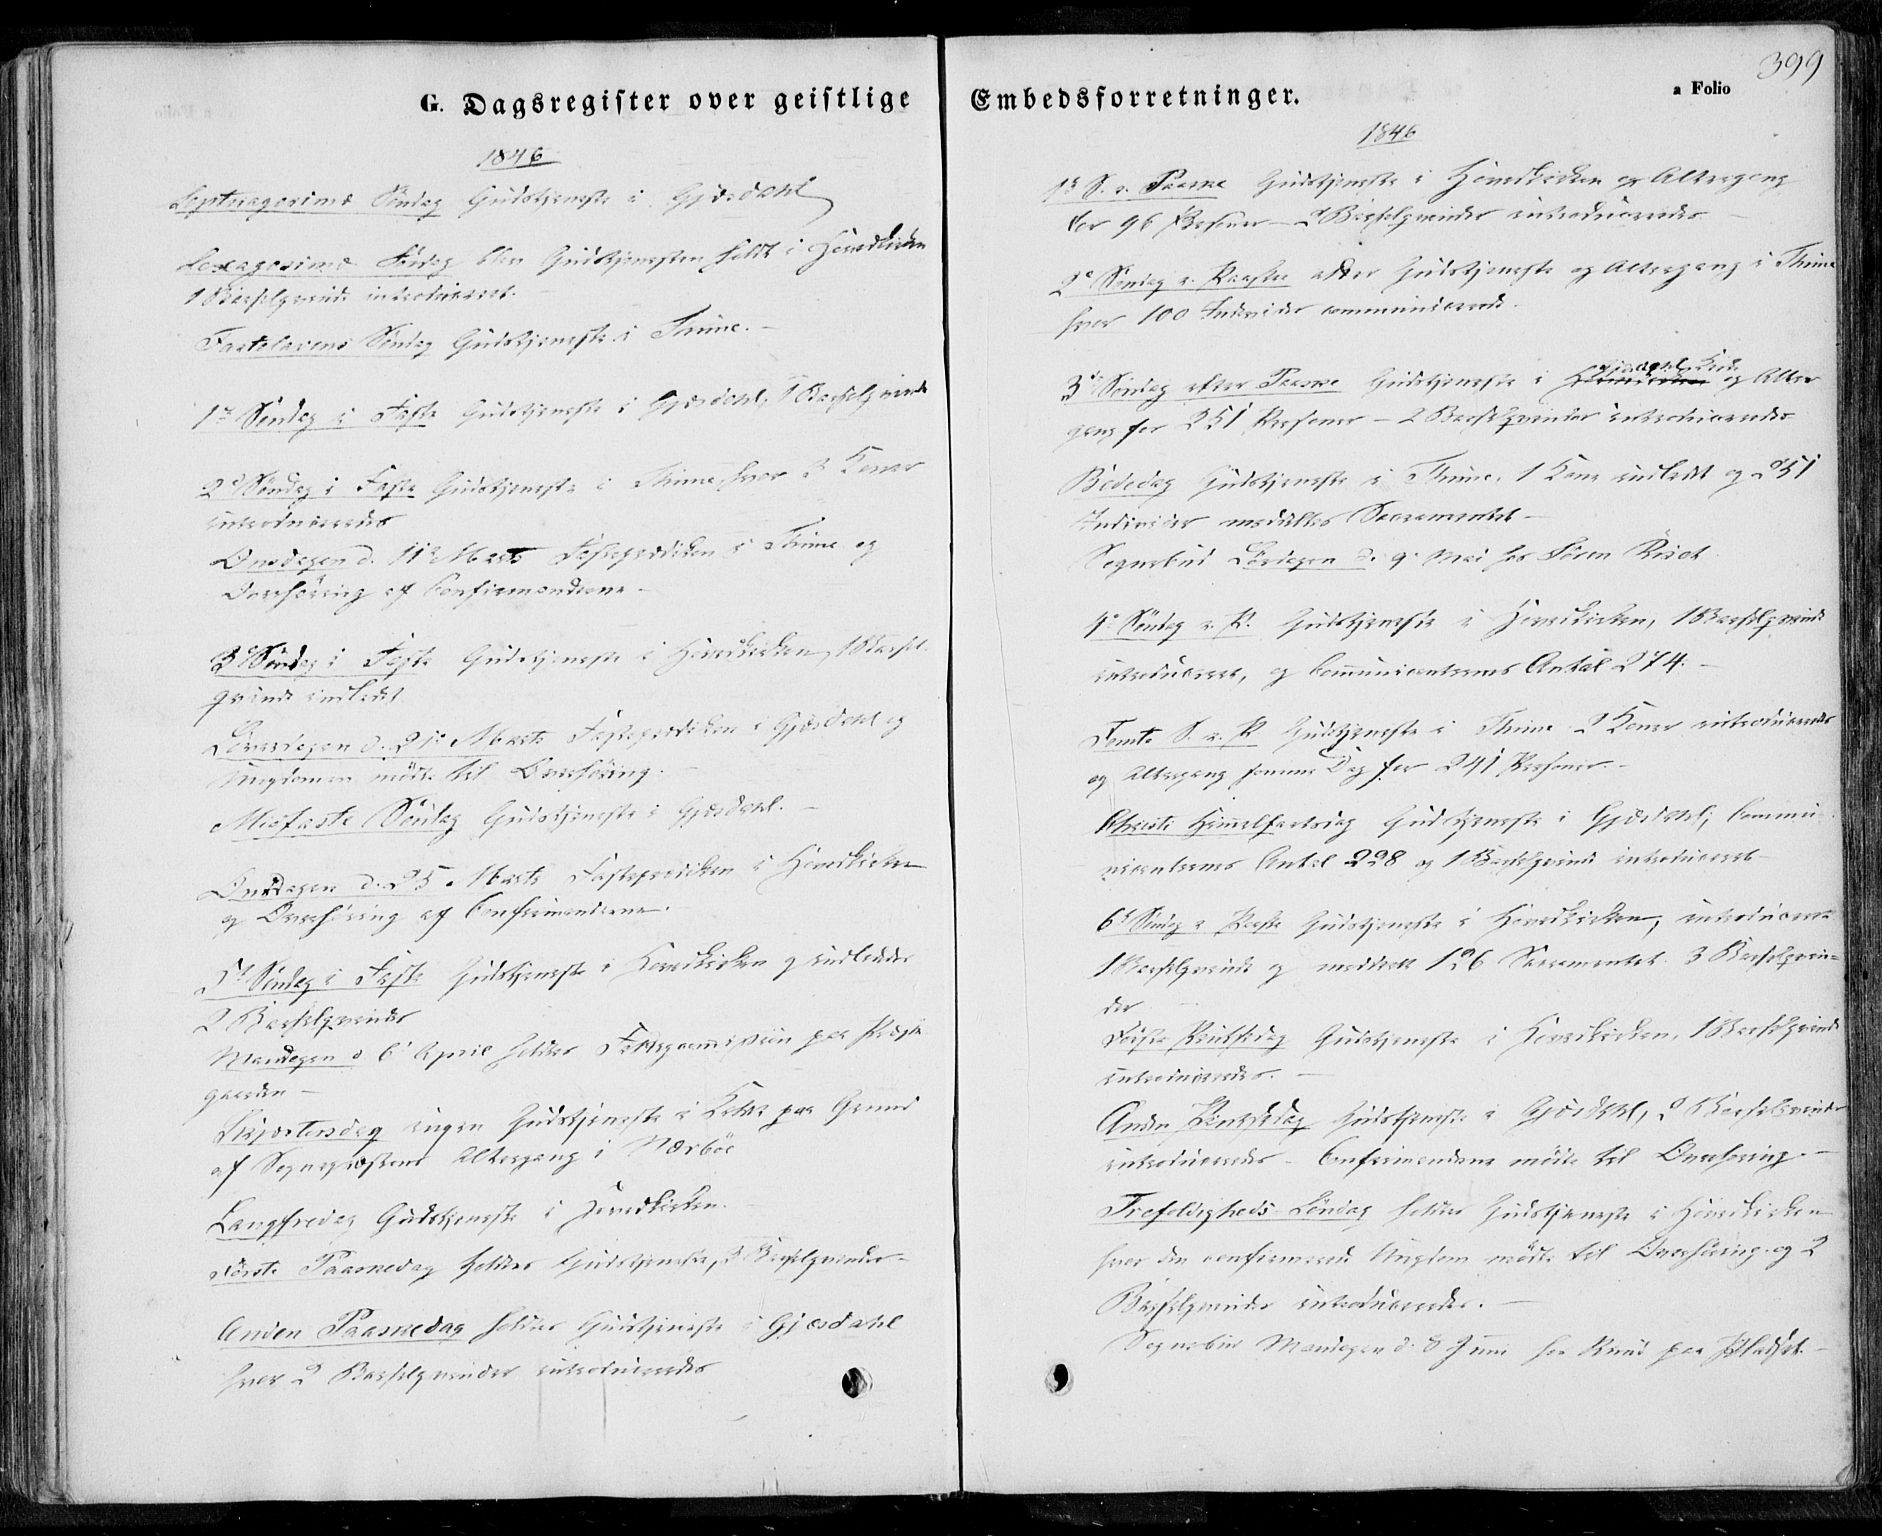 G. Dagsregister over geistlige
1846
Septuagesima Söndag Gudstjeneste i Gjesdahl
Sexagesima Söndag blev Gudstjenesten holdt i Hovedkirken
1 Barselqvinde introduceret.
Fastelavens Söndag Gudstjeneste i Thime. –
1ste Söndag i Faste Gudstjeneste i Gjesdahl, 1 Barselqvinde
2d Söndag i Faste Gudstjeneste i Thime hvor 3 Koner
introduceredes
Onsdagen d. 11te Marts Fasteprædiken i Thime og
Overhöring af Confirmanderne –
3d Söndag i Faste Gudstjeneste i Hovedkirken, 1 Barsel-
qvinde indledet
Löverdagen d. 21de Marts Fasteprædiken i Gjesdahl og
Ungdommen mödte til Overhöring.
Midfaste Söndag Gudstjeneste i Gjesdahl. –
Onsdagen d. 25 Marts Fasteprædiken i Hovedkirken
og Overhöring af Confirmanderne.
5te Söndag i Faste Gudstjeneste i Hovedkirken og indlededes
2 Barselqvinder
Mandagen d 6te April holdtes paa Præste
gaarden –
Skjertorsdag ingen Gudstjeneste i Kaldet paa Grund
af Sognepræstens Altergang i Nærböe
Langfredag Gudstjeneste i Hovedkirken.
Förste Paaskedag holdtes Gudstjeneste, 3 Barselqvinder –
Anden Paaskedag holdtes Gudstjeneste i Gjesdahl
hvor 2 Barselqvinder introduceredes
Embedsforretninger.
a Folio
399
1846
1ste S. e. Paaske Gudstjeneste i Hovedkirken og Altergang
for 96 Personer – 2 Barselqvinder introduceredes –
2d Söndag e. Paaske Gudstjeneste og Altergang i Thime
hvor 100 Individer communicerede.
3die Söndag efter Paaske Gudstjeneste i Hovedkirken Gjesdahl Kirke og Alter
gang for 251 Personer – 2 Barselqvinder introduceredes
Bededag Gudstjeneste i Thime. 1 Kone indledt og 251
Individer meddeltes Sacramentet –
Sognebud Löverdagen d. 9 Mai hos Sören
4de Söndag e. P. Gudstjeneste i Hovedkirken, 1 Barselqvinde
introduceret, og Communicanternes Antal 274. –
Femte S. e. P Gudstjeneste i Thime 2 Koner introduceredes
og Altergang samme Dag for 241 Personer –
Christi Himmelfartsdag Gudstjeneste i Gjesdahl; Commu-
nicanternes Antal 228 og 1 Barselqvinde introduceret –
6te Söndag e Paaske Gudstjeneste i Hovedkirken, introduceret
1 Barselqvinde og meddeelt 126 Sacramentet. 3 Barselqvin-
der
Förste Pintsedag Gudstjeneste i Hovedkirken, 1 Barselqvinde
introduceredes. –
Anden Pintsedag Gudstjeneste i Gjesdahl, 2 Barselqvinder
introduceredes – Confirmanderne mödte til Overhöring. –
Trefoldigheds Söndag holdtes Gudstjeneste i Hovedkirken
hvor den confirmerede Ungdom mödte til Overhöring og 2
Barselqvinder introduceredes. –
Sognebud Mandagen d. 8 Juni hos Knud paa Pladset –